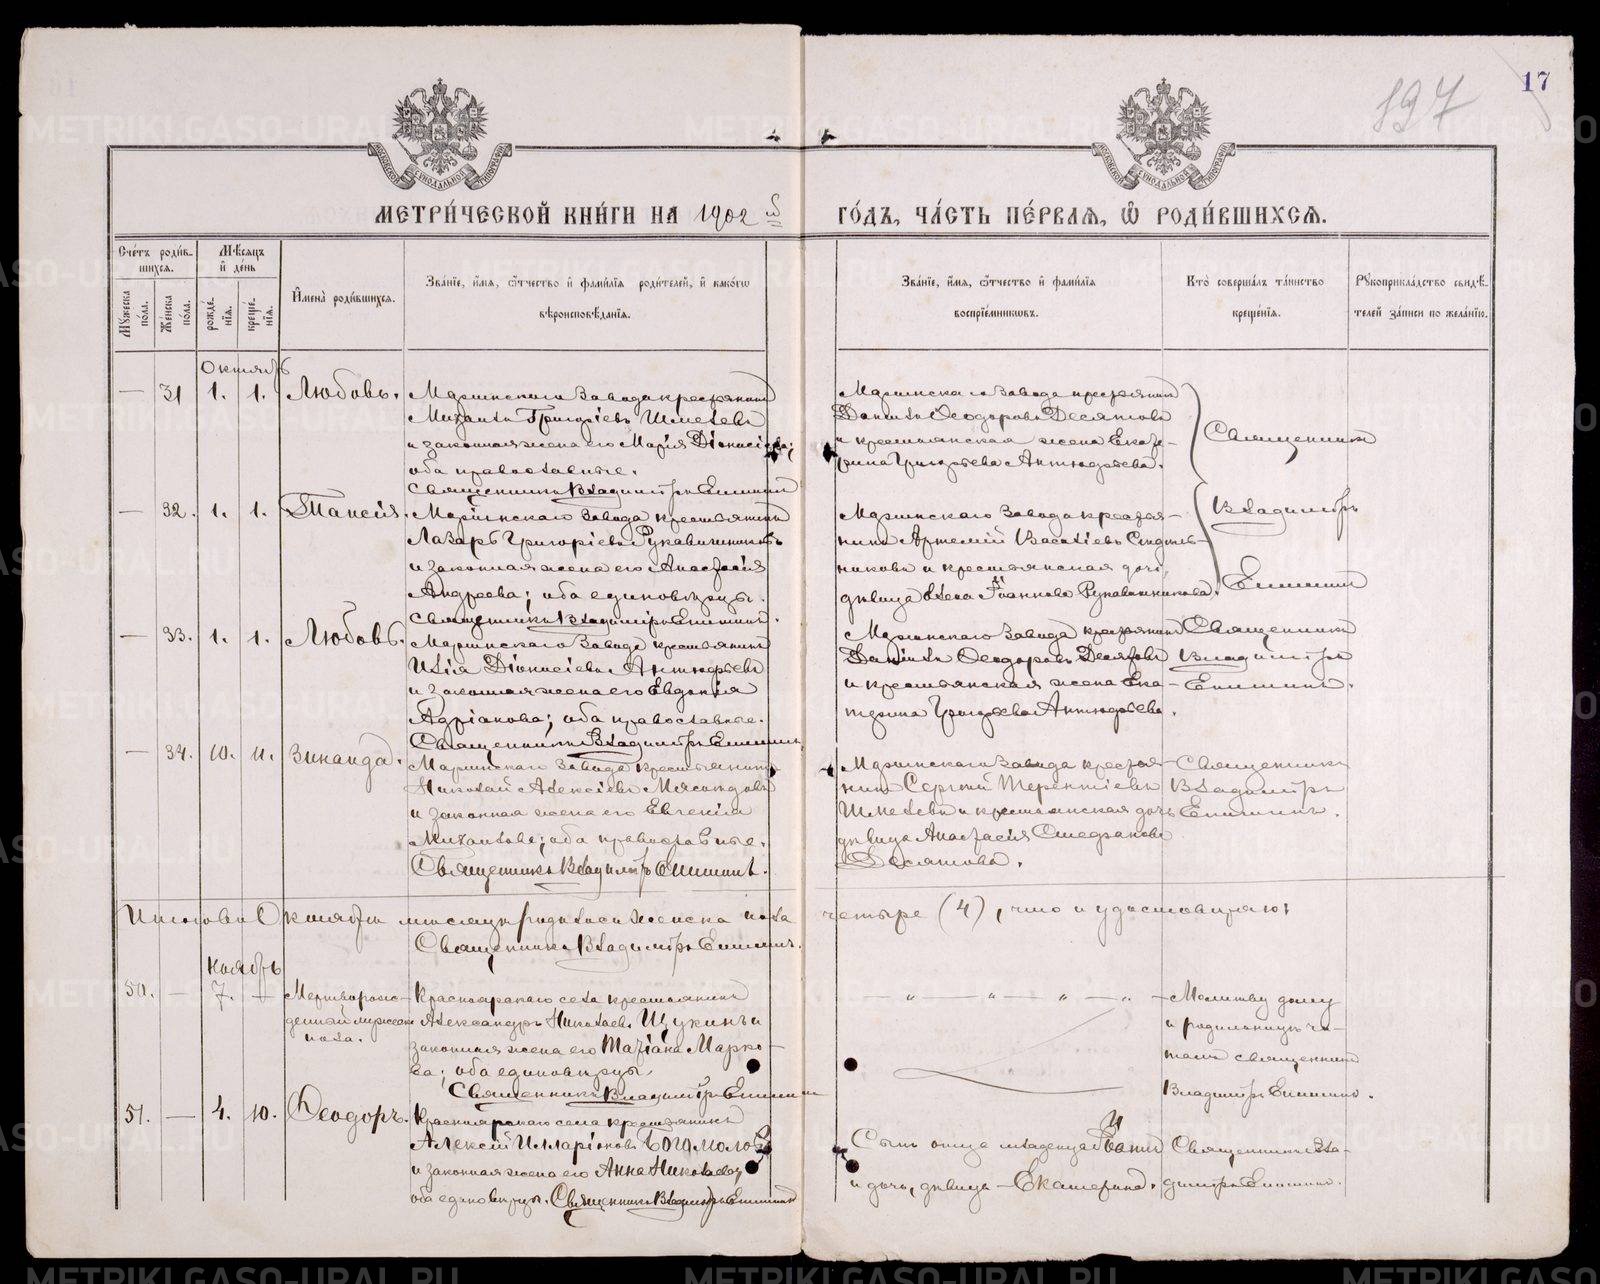 17
197
МЕТРИ́ЧЕСКОЙ КНИ́ГИ НА 1902 й
ГО́ДЪ, ЧА́СТЬ ПЕ́РВАЯ, Ѽ РОДИ́ВШИХСЯ.
Сче́тъ роди́в-
шихся.
Мѣ́сяцъ
и҆ де́нь
Му́жеска по́ла.
Же́нска по́ла.
рожде́-
нїя.
креще́-
нїя.
И҆мена̀ роди́вшихся.
Зва́нїе, и҆́мя, ѻ҆́тчество и҆ фами́лїя роди́телей, и҆ како́гѡ
вѣроисповѣ́данїя.
Зва́нїе, и҆́мя, ѻ҆́тчество и҆ фами́лїя
воспрїе́мникѡвъ.
Кто̀ соверша́лъ та́инство
креще́нїя.
Рꙋкоприкла́дство свидѣ́-
телей за́писи по жела́нїю.
Октябрь
— 31 1. 1. Любовь.
Маріинскаго завода крестьянинъ
Михаилъ Григоріевъ Шмелевъ
и законная жена его Марія Діонисіева;
оба православные.
Священникъ Владиміръ Епишинъ
Маріинскаго завода крестьянинъ
Даніилъ Ѳеодоровъ Десятовъ
и крестьянская жена Екате-
рина Григорьева Антюфьева.
Священникъ
— 32. 1. 1. Таисія.
Маріинскаго завода крестьянинъ
Лазарь Григоріевъ Рукавишниковъ
и законная жена его Анастасія
Андреева; оба единовѣрцы.
Священникъ Владиміръ Епишинъ.
Маріинскаго завода крестья-
нинъ Артемій Василіевъ
и крестьянская дочь,
дѣвица Елена Іоаннова Рукавишникова.
Владиміръ
Епишинъ
— 33. 1. 1. Любовь.
Маріинскаго завода крестьянинъ
Илія Діонисіевъ Антюфьевъ
и законная жена его Евдокія
Адріанова; оба православные.
Священникъ Владиміръ Епишинъ
Маріинскаго завода крестьянинъ
Даніилъ Ѳеодоровъ Десятовъ
и крестьянская жена Ека-
терина Григорьева Антюфьева.
Священникъ
Владиміръ
Епишинъ.
— 34. 10. 11. Зинаида.
Маріинскаго завода крестьянинъ
Николай Алексіевъ Мясоѣдовъ
и законная жена его Евгенія
Михаилова; оба православные.
Священникъ Владиміръ Епишинъ.
Маріинскаго завода крестья-
нинъ Сергій Терентіевъ
Шмелевъ и крестьянская дочь
дѣвица Анастасія Стефанова
Десятова.
Священникъ
Владиміръ
Епишинъ.
Итого въ Октябрѣ мѣсяцѣ родилось женска пола четыре (4), что и удостовѣряю:
Священникъ Владиміръ Епишинъ.
Ноябрь
50. — 7. — Мертворож-
денный мужеск.
пола.
Красноярскаго села крестьянинъ
Александръ Николаевъ Щукинъ и
законная жена его Татіана Марко-
ва; оба единовѣрцы.
Священникъ Владиміръ Епишинъ
— „ — „ — „ — „ —
Молитву дому
и родильницѣ чи-
талъ священникъ
Владиміръ Епишинъ.
51. — 4. 10. Ѳеодоръ.
Красноярскаго села крестьянинъ
Алексій Илларіоновъ Богомоловъ
и законная жена его Анна Николаева
оба единовѣрцы. Священникъ Владиміръ Епишинъ
Сынъ отца младенца Іоаннъ
и дочь, дѣвица — Екатерина.
Священникъ Вла-
диміръ Епишинъ.
METRIKI.GASO-URAL.RU